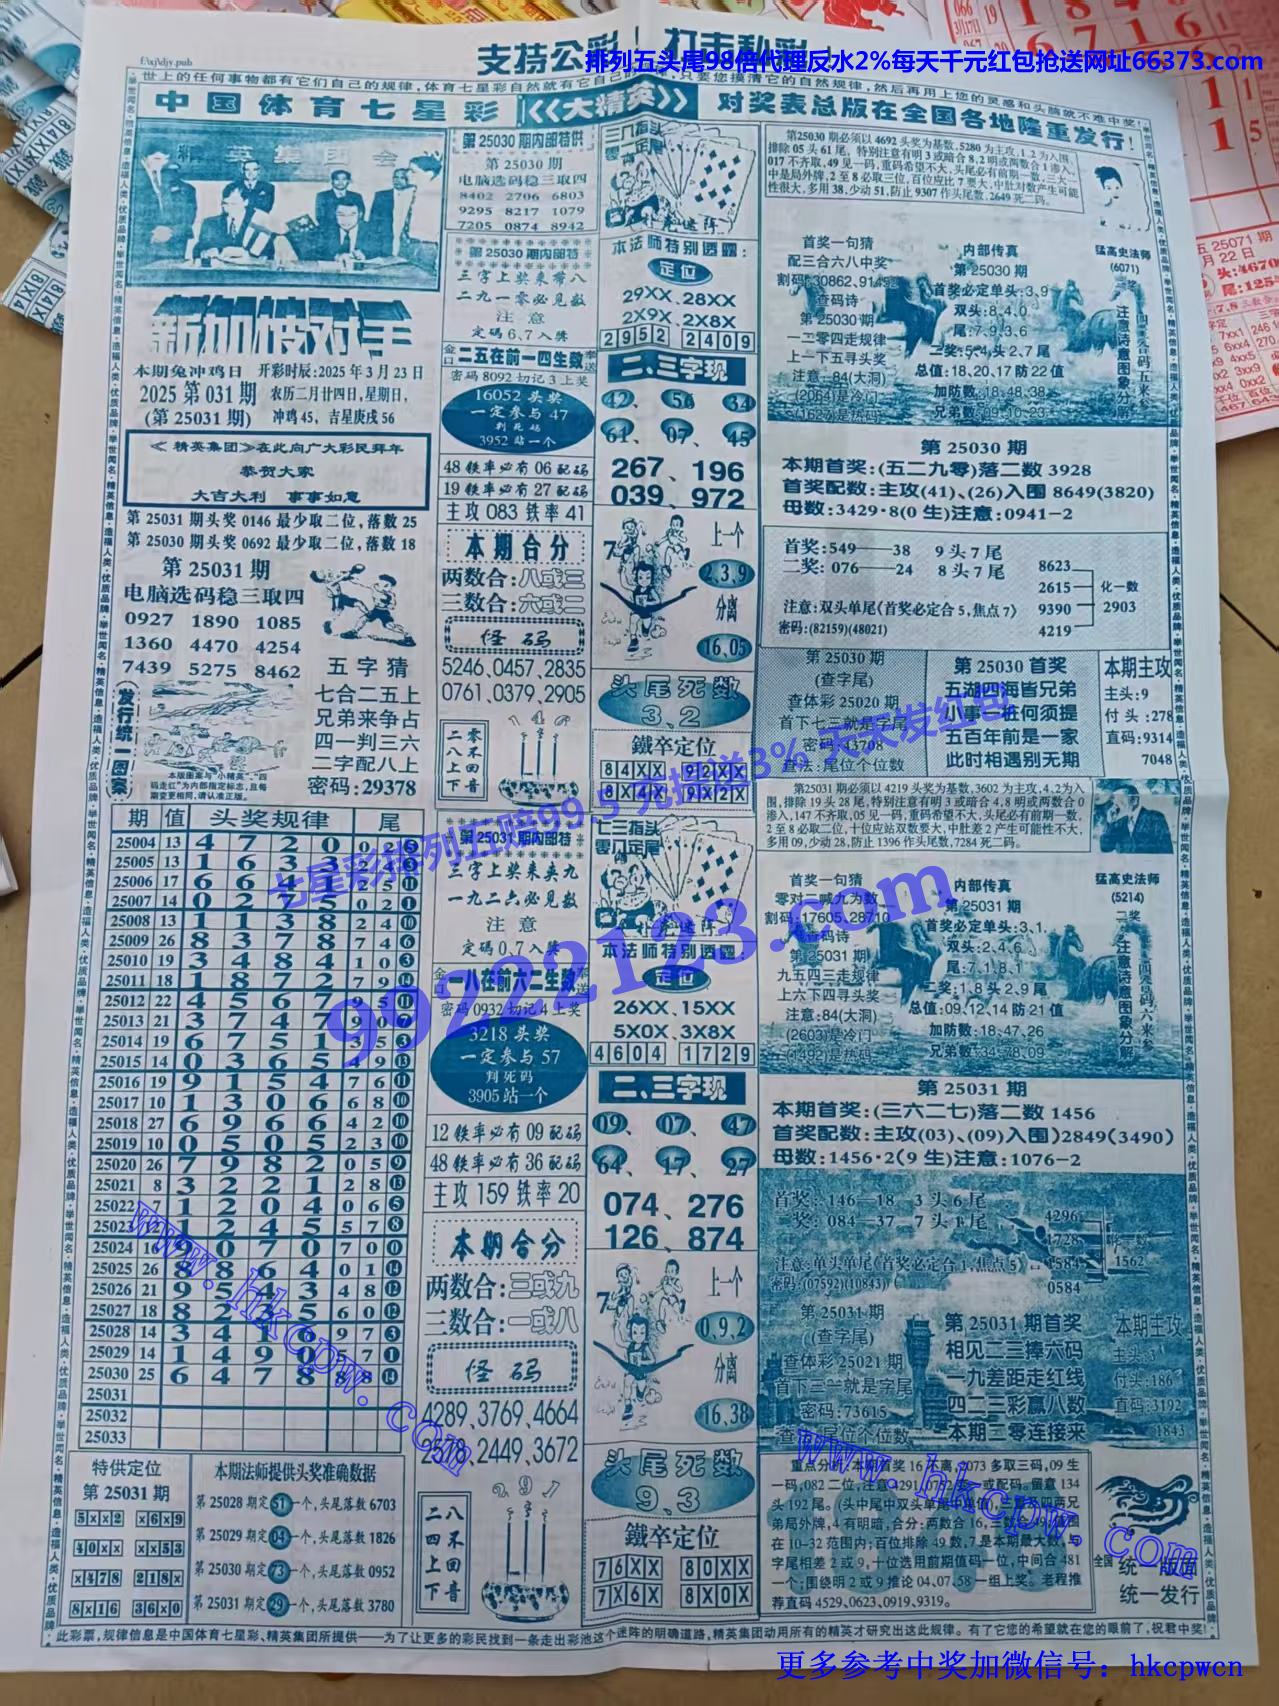 支持公彩！打击私彩！
排列五头尾98倍代理反水2%每天千元红包抢送网址66373.com
f:\xj\djy.pub
世上的任何事物都有它们自己的规律,体育七星彩自然就有它自己的规律,只要您摸清它的自然规律,然后再用上您的灵感和头脑就不难中奖!
中国体育七星彩《大精英》对奖表总版在全国各地隆重发行!
精英集团会
新加坡对手
本期兔冲鸡日 开彩时辰:2025年3月23日
2025第031期 农历二月廿四日,星期日,
(第25031期) 冲鸡45, 吉星庚戌56
《精英集团》在此向广大彩民拜年
恭贺大家
大吉大利 事事如意
第25031期头奖0146最少取二位,落数25
第25030期头奖0692最少取二位,落数18
第25031期
电脑选码稳三取四
0927 1890 1085
1360 4470 4254
7439 5275 8462
发行统一图案
五字猜
七合二五上
兄弟来争占
四一判三六
二字配八上
密码:29378
本版图案与“小精英”、“四
码走红”为内部指定标志,且每
期变更相同,请认准正版。
期 值 头奖规律 尾
25004 13 4 7 2 0 0 2 5
25005 13 1 6 3 3 2 4 3
25006 17 6 6 4 1 2 5 11
25007 14 0 2 5 0 2 1
25008 13 1 1 3 8 2 4 10
25009 26 8 3 7 8 7 4 6
25010 19 3 4 8 4 1 0 3
25011 18 1 8 7 2 7 9 14
25012 22 4 5 6 7 9 5 11
25013 21 3 7 4 7 9 0 7
25014 19 6 7 5 1 3 5 3
25015 14 0 3 6 5 4 9 13
25016 19 9 1 5 4 7 6 11
25017 10 1 3 0 6 6 8 10
25018 27 6 9 6 6 4 2 10
25019 10 0 5 0 5 2 3 10
25020 26 7 9 8 2 0 5 9
25021 8 3 2 2 1 2 8 13
25022 7 1 2 0 4 0 6 5
25023 12 1 2 4 5 5 7 8
25024 16 9 0 7 0 7 0 0
25025 26 8 8 6 4 0 1 14
25026 21 9 5 4 3 4 8 12
25027 18 8 2 3 5 6 0 12
25028 14 3 4 1 6 9 7 3
25029 14 1 4 9 0 5 7 1
25030 25 6 4 7 8 8 8 14
25031
25032
25033
特供定位
第25031期
5xx2 x6x9
40xx xx53
x478 218x
8x16 36x0
本期法师提供头奖准确数据
第25028期定51一个,头尾落数6703
第25029期定04一个,头尾落数1826
第25030期定73一个,头尾落数0952
第25031期定29一个,头尾落数3780
第25030期内部特供
第25030期
电脑选码稳三取四
8402 2706 6803
9295 8217 1079
7205 0874 8942
第25030期内部特
三字上奖来带八
二九一零必见数
注意
定码6.7入奖
金口 二五在前一四生数 奉送
密码8092切记3上奖
16052头奖
一定参与47
判死码
3952站一个
48铁率必有06配码
19铁率必有27配码
主攻083铁率41
本期合分
两数合:八或三
三数合:六或二
怪码
5246,0457,2835
0761,0379,2905
二零
八不
上回
下音
第25031期内部特
三字上奖来夹九
一九二六必见数
注意
定码0.7入奖
金口 一八在前六二生数 奉送
密码0932切记4上奖
3218头奖
一定参与57
判死码
3905站一个
12铁率必有09配码
48铁率必有36配码
主攻159铁率20
本期合分
两数合:三或九
三数合:一或八
怪码
4289,3769,4664
2578,2449,3672
二八
四不
上回
下音
三几指头
零门定尾
扑克迷阵
本法师特别透露:
定位
29XX、28XX
2X9X、2X8X
2952 2409
二、三字现
42、56 34
61、07、45
267、196
039、972
上一个
2,3,9
分离
16,05
头尾死数
3,2
鐵卒定位
84XX 92XX
8X4X 9X2X
七三指头
零几定尾
扑克迷阵
本法师特别透露:
定位
26XX、15XX
5X0X、3X8X
4604 1729
二、三字现
09、07、47
64、17、27
074、276
126、874
上一个
0,9,2
分离
16,38
头尾死数
9,3
鐵卒定位
76XX 80XX
7X6X 8X0X
第25030期必须以4692头奖为基数,5280为主攻,1、2为入围,
排除05头61尾,特别注意有明3或暗合8,2明或两数合1渗入,
017不齐取,49见一码,重码希望不大,头尾必有前期一数,二奖
中是局外牌,2至8必取二位,百位应比7要大,中肚对数产生可能
性很大,多用38,少动51,防止9307作头尾数,2649死二码。
首奖一句猜
配三合六八中奖
割码:30862,91492
查码诗
第25030期
一二零四走规律
上一下五寻头奖
注意:84(大洞)
(2064)是冷门
(51627)是热码
内部传真
第25030期
首奖必定单头:3,9
双头:8,4,0
尾:7,9,3,6
二奖:5,4,头2,7尾
总值:18,20,17防22值
加防数:18,48,38
兄弟数:09,10,23
猛高史法师
(6071)
二奖:四买号码五来参
注意诗意图象分解
第25030期
本期首奖:(五二九零)落二数3928
首奖配数:主攻(41)、(26)入围8649(3820)
母数:3429·8(0生)注意:0941-2
首奖:549——38 9头7尾
二奖:076——24 8头7尾
注意:双头单尾(首奖必定合5,焦点7)
密码:(82159)(48021)
8623
2615
9390
4219
化一数
2903
第25030期
(查字尾)
查体彩25020期
首下七三就是字尾
密码:43708
查法:尾位个位数
第25030首奖
五湖四海皆兄弟
小事一桩何须提
五百年前是一家
此时相遇别无期
本期主攻
主头:9
付头:278
直码:9314
7048
第25031期必须以4219头奖为基数,3602为主攻,4,2为入
围,排除19头28尾,特别注意有明3或暗合4,8明或两数合0
渗入,147不齐取,05见一码,重码希望不大,头尾必有前期一数,
2至8必取二位,十位应站双数要大,中肚差2产生可能性不大,
多用09,少动28,防止1396作头尾数,7284死二码。
首奖一句猜
零对二喊九为数
割码:17605,28710
查码诗
第25031期
九五四三走规律
上六下四寻头奖
注意:84(大洞)
(2603)是冷门
(1492)是热码
内部传真
第25031期
首奖必定单头:3,1
双头:2,4,6
尾:7,1,8,1
二奖:1,8头2,9尾
总值:09,12,14防21值
加防数:18,47,26
兄弟数:34,78,09
猛高史法师
(5214)
二奖:四买号码六来参
注意诗意图象分解
第25031期
本期首奖:(三六二七)落二数1456
首奖配数:主攻(03)、(09)入围)2849(3490)
母数:1456·2(9生)注意:1076-2
首奖:146—18 3头6尾
二奖:084—37 7头1尾
注意:单头单尾(首奖必定合1,焦点5)
密码:(07592)(10843)
4296
1728
1584
0584
化一数
1562
第25031期
(查字尾)
查体彩25021期
首下三二就是字尾
密码:73615
查法:尾位个位数
第25031期首奖
相见二三捧六码
一九差距走红线
四二三彩赢八数
本期二零连接米
本期主攻
主头:3
付头:186
直码:3192
1843
重点分析:本期首奖16不离,2073多取三码,09生
一码,082二位,注意4291,0752头
头192尾。(头中尾中双头单尾中某值),三
弟局外牌,4有明暗,合分:两数合16,三数合
在10-32范围内;百位排除49数,7是本期最大数,与
字尾相差2或9,十位选用前期值码一位,中间合481
一个;围绕明2或9推论04、07、58一组上奖。老程推
荐直码4529、0623、0919、9319。
全国 统一版面
统一发行
此彩票,规律信息是中国体育七星彩、精英集团所提供——为了让更多的彩民找到一条走出彩池这个迷阵的明确道路,精英集团动用所有的精英才研究出这此规律。有了它您的希望就在您的眼前了,祝君中奖!
七星彩排列五赔99.5 充提送3% 天天发红包
99222123.com
www.hkcpw.com
www.hkcpw.com
更多参考中奖加微信号: hkcpwcn